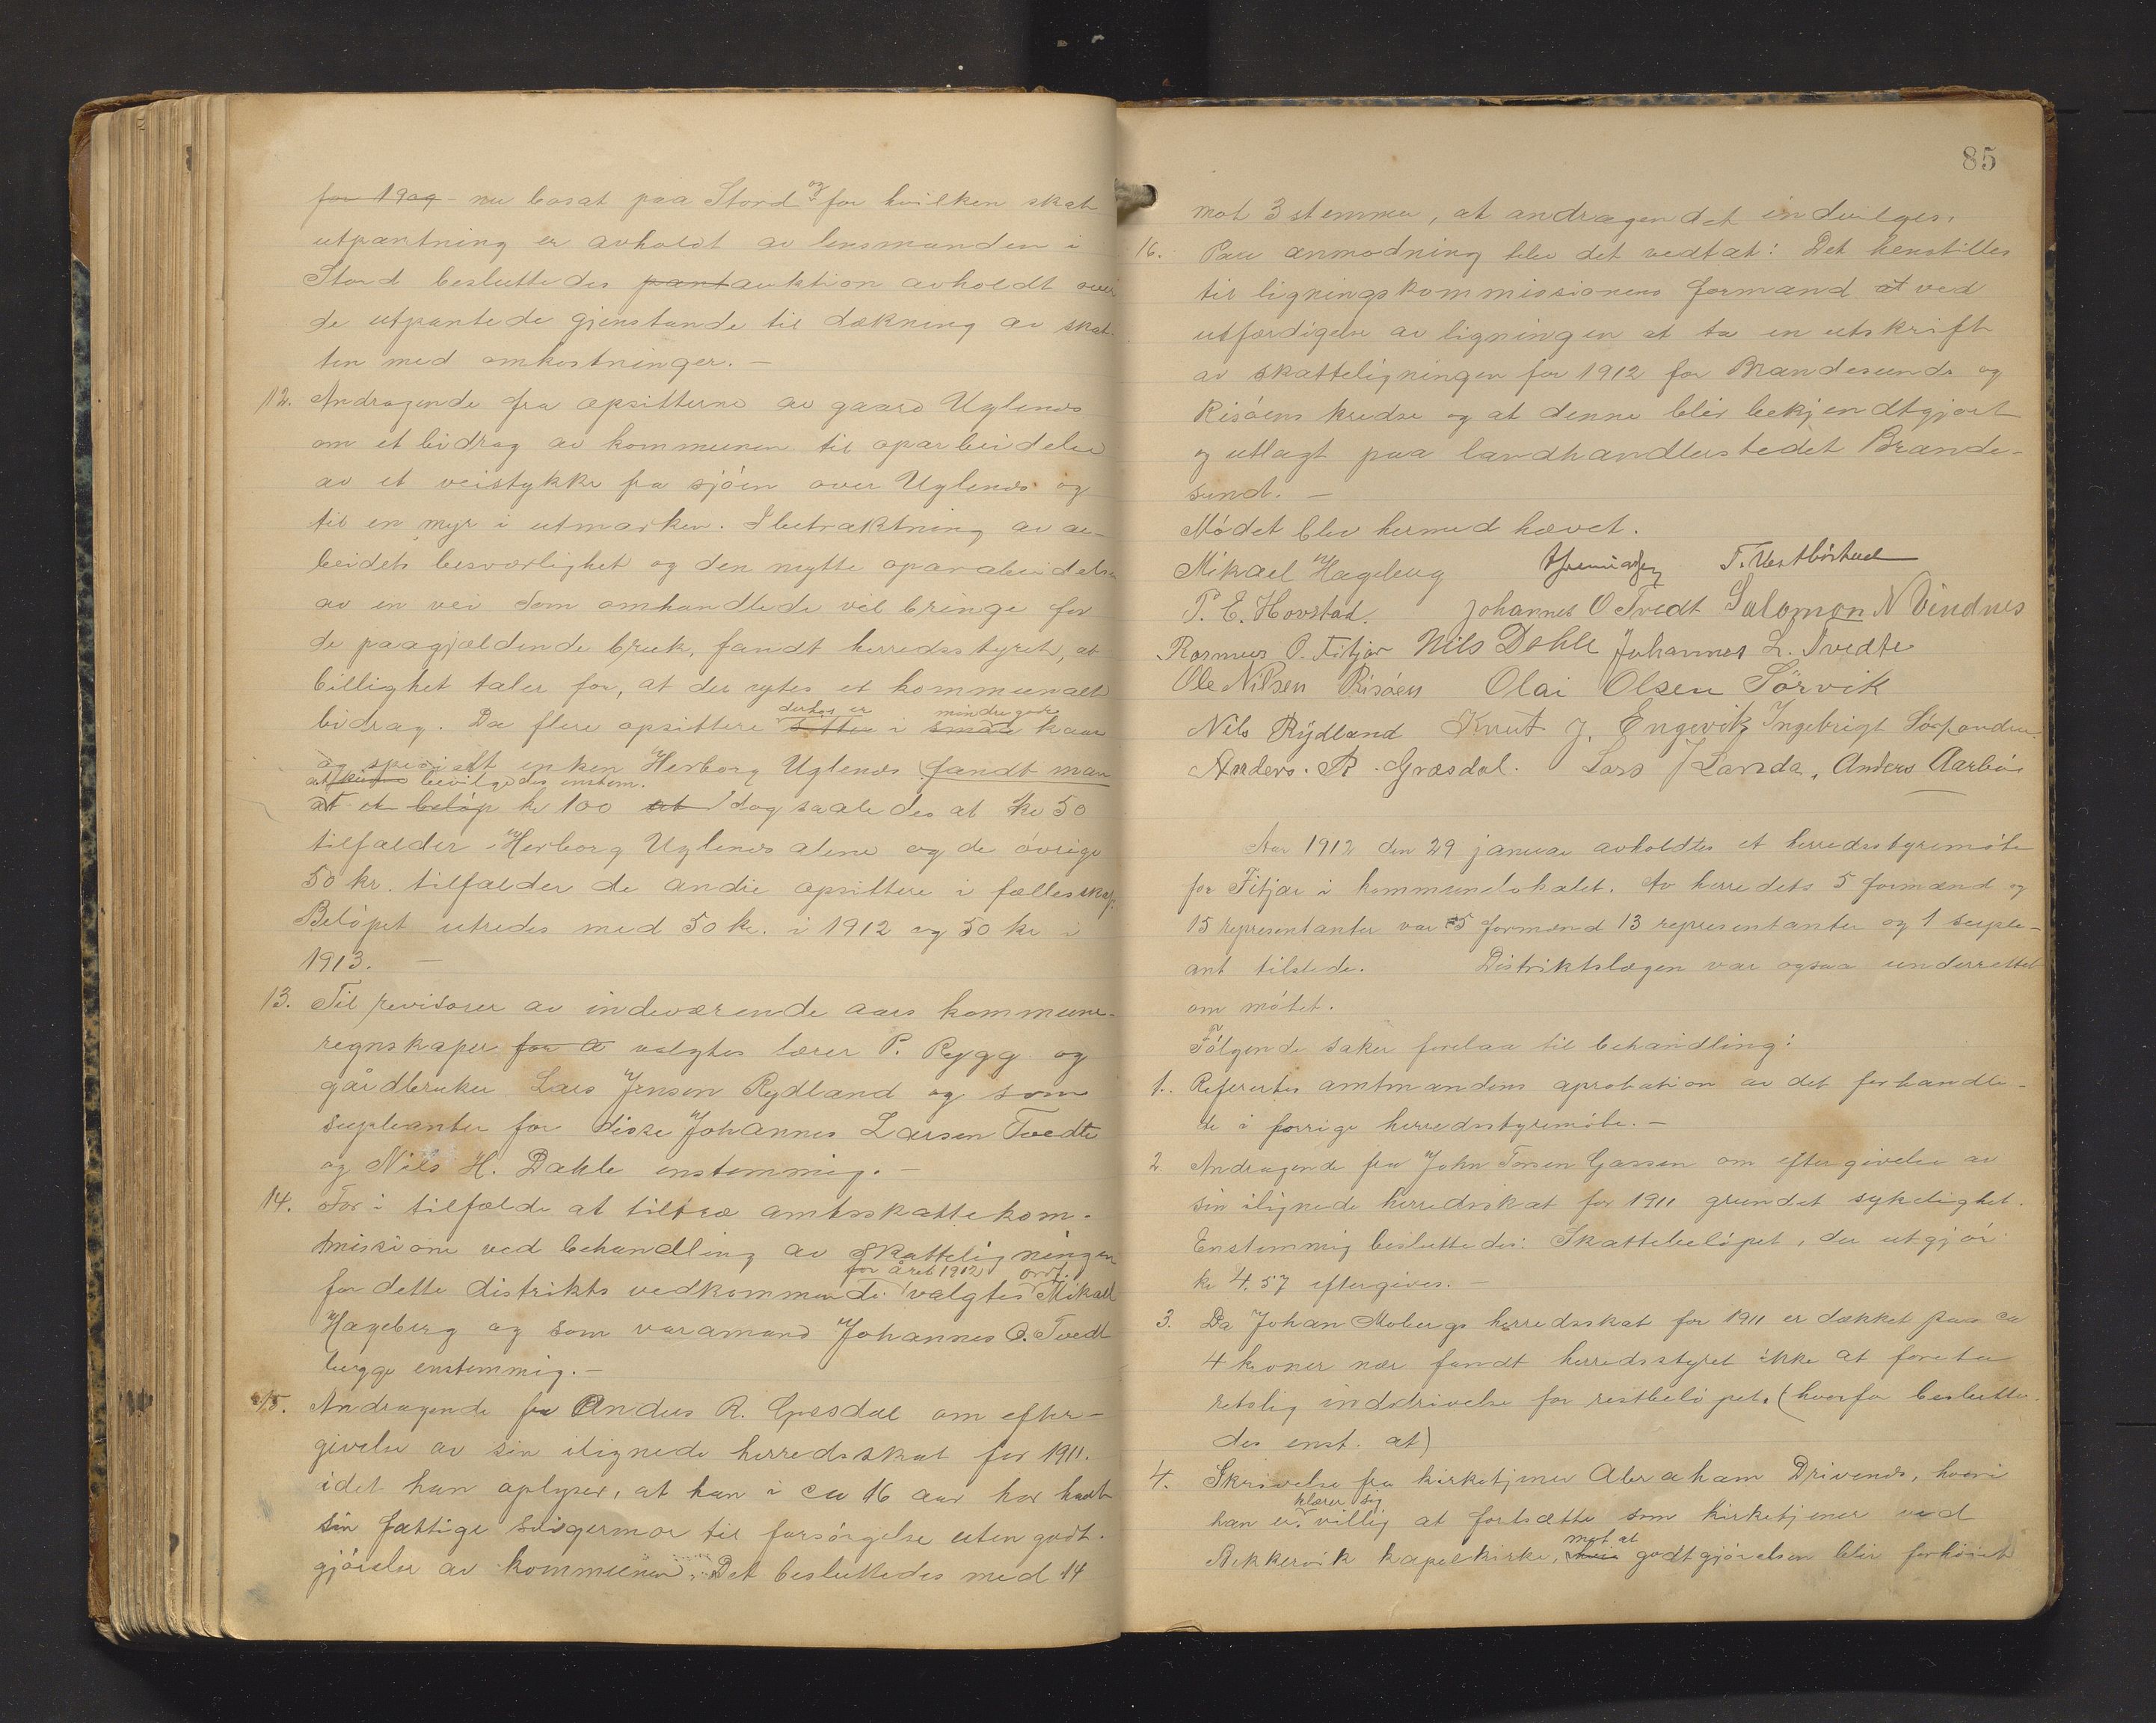 for 1909 - nu bosat paa Stord og for hvilken skat
utpantning er avholdt av lensmanden i
Stord besluttedes pantauktion avholdt over
de utpantede gjenstande til dækning av skat-
ten med omkostninger. -
12. Andragende fra opsitterne av gaard Uglenes
om et bidrag av kommunen til oparbeidelse
av et veistykke fra sjøen over Uglenes og
til en myr i utmarken. I betraktning av ar-
beidets besværlighet og den nytte oparbeidelsen
av en vei som omhandlede vil bringe for
de paagjældende bruk, fandt herredsstyret, at
billighet taler for, at der ydes et kommunalt
derhos er mindre gode
bidrag. Da flere opsittere sitter i smaa kaar
og specielt enken Herborg Uglenes fandt man
at bevilgedes enstem.
at et beløp kr 100 dog saaledes at kr 50
tilfalder Herborg Uglenes alene og de øvrige
50 kr. tilfalder de andre opsittere i fællesskap.
Beløpet utredes med 50 kr. i 1912 og 50 kr i
1913. -
13. Til revisorer av indeværende aars kommune-
regnskaper for a valgtes lærer P. Rygg og
gårdbruker Lars Jensen Rydland og som
supleanter for disse Johannes Larsen Tvedte
og Nils H. Dahle enstemmig. -
14. For i tilfælde at tiltræ amtsskattekom-
missionen ved behandling av skatteligningen
for året 1912 ordf.
for dette distrikts vedkommende valgtes Mikael
Hageberg og som varamand Johannes O. Tvedt
begge enstemmig. -
15. Andragende fra Anders R. Græsdal om efter-
givelse av sin ilignede herredsskat for 1911.
idet han oplyser, at han i ca 16 aar har havt
sin fattige svigermor til forsørgelse uten godt-
gjørelse av kommunen. Det besluttedes med 14
85
mot 3 stemmer, at andragendet indvilges.
16. Paa anmodning blev det vedtat: Det henstilles
til ligningskommissionens formand at ved
utfærdigelse av ligningen at ta en utskrift
av skatteligningen for 1912 for Brandesunds og
Risøens kredse og at denne blir bekjendtgjort
og utlagt paa landhandlerstedet Brande-
sund. -
Mødet blev hermed hævet.
Mikael Hageberg T. Vestbøstad
P. E. Hovstad. Johannes O Tvedt Salomon N Vindnes
Rasmus O. Fitjar Nils Dahle Johannes L. Tvedte
Ole Nilsen Risøen Olai Olsen Sørvik
Nils Rydland Knut J. Engevik Ingebrigt Sørfonden.
Anders. R. Græsdal. Lars J Landa, Anders Aarbø
Aar 1912 den 29 januar avholdtes et herredsstyremøte
for Fitjar i kommunelokalet. Av herredets 5 formænd og
15 representanter var 5 formænd 13 representanter og 1 suple-
ant tilstede. Distriktslægen var ogsaa underrettet
om møtet.
Følgende saker forelaa til behandling:
1. Refertes amtmandens aprobation av det forhandle-
te i forrige herredsstyremøte. -
2. Andragende fra John Torsen Gassen om eftergivelse av
sin ilignede herredsskat for 1911 grundet sykelighet.
Enstemmig besluttedes: Skattebeløpet, der utgjør
kr 4.57 eftergives. -
3. Da Johan Mobergs herredsskat for 1911 er dækket paa ca
4 kroner nær fandt herredsstyret ikke at foreta
retslig inddrivelse for restbeløpet. (hvorfor beslutte-
des enst. at)
4. Skrivelse fra kirketjener Abraham Drivenes, hvori
klærer sig
han er villig at fortsætte som kirketjener ved
mot at
Rekkervik kapelkirke, hvis godtgjørelsen blir forhøiet